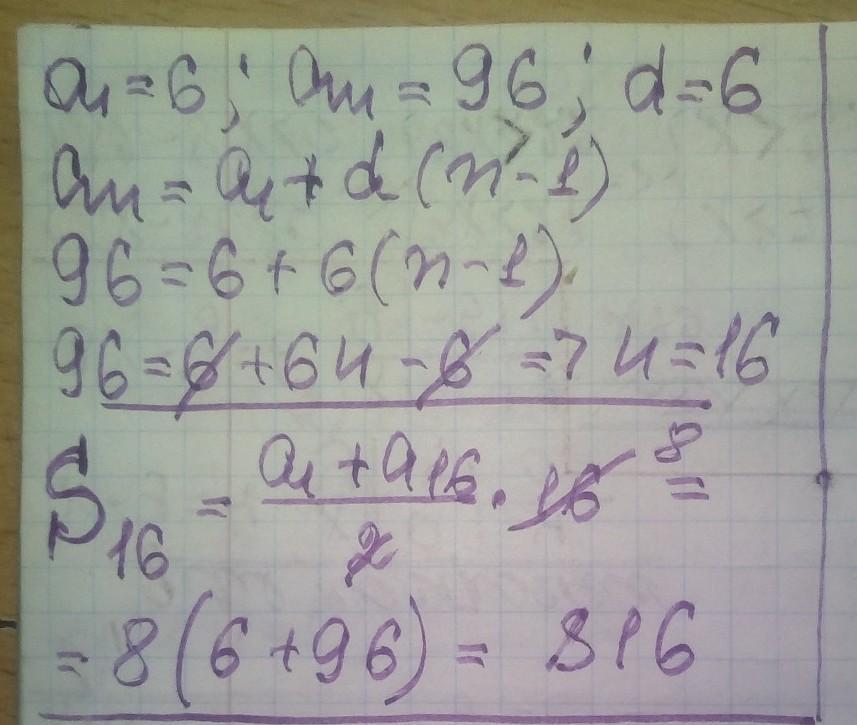 a₁ = 6 ; aₙ = 96 ; d = 6
aₙ = a₁ + d (n - 1)
96 = 6 + 6 (n - 1)
96 = 6 + 6n - 6 => n = 16
S₁₆ = (a₁ + a₁₆) / 2 · 16 8 =
= 8 (6 + 96) = 816